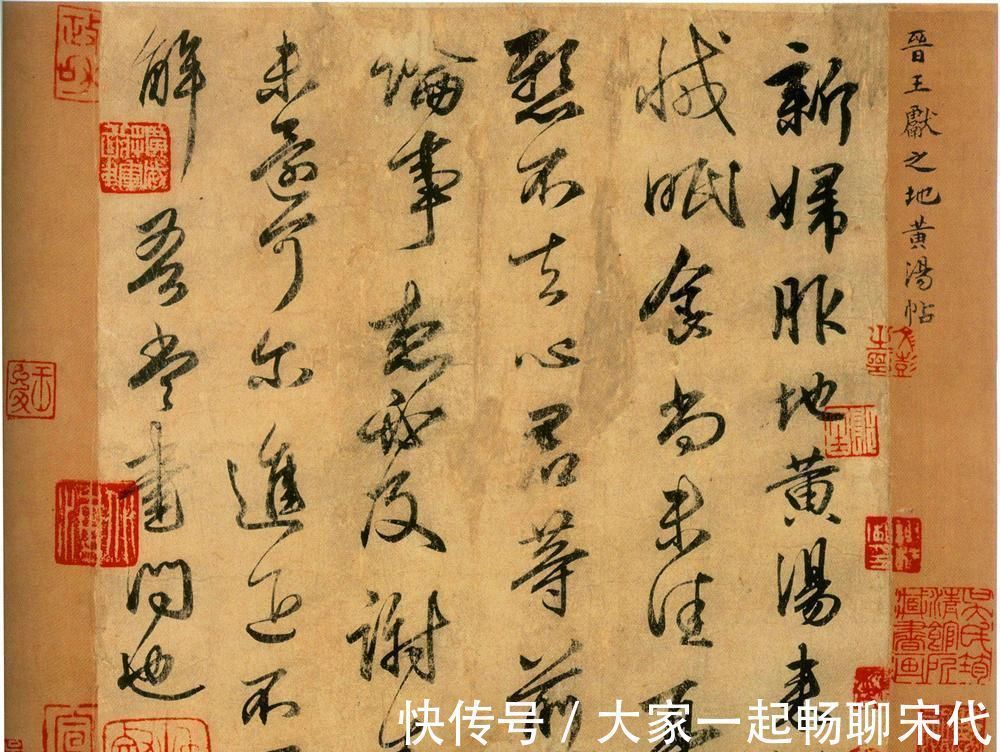 晉王獻之地黄湯帖
新婦服地黄湯來
減眠食尚未佳
懸不去心君等前
論事想必及謝生
未還可尔進退不
解吾當書問也
快传号 / 大家一起畅聊宋代